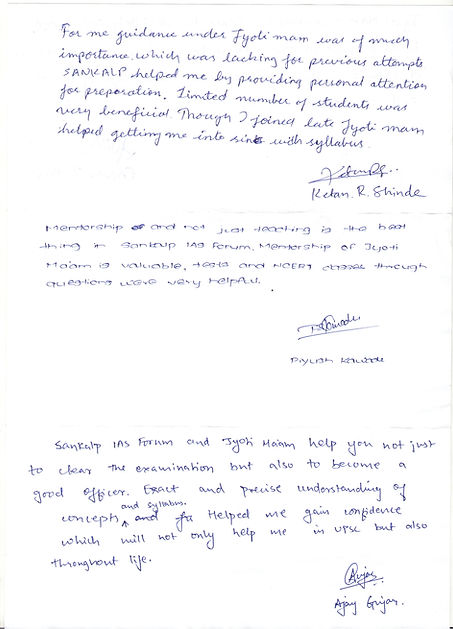 For me guidance under Jyoti mam was of much
importance, which was lacking for previous attempts
SANKALP helped me by providing personal attention
for preparation. Limited number of students was
very beneficial. Though I joined late Jyoti mam
helped getting me into sink with syllabus.
Ketan. R. Shinde
Mentorship and not just teaching is the best
thing in Sankalp IAS Forum. Mentorship of Jyoti
Ma'am is valuable, tests and NCERT classes through
questions were very helpful.
Piyush
Sankalp IAS Forum and Jyoti Ma'am help you not just
to clear the examination but also to become a
good officer. Exact and precise understanding of
concepts and syllabus. Helped me gain confidence
which will not only help me in UPSC but also
throughout life.
Ajay Gujar.